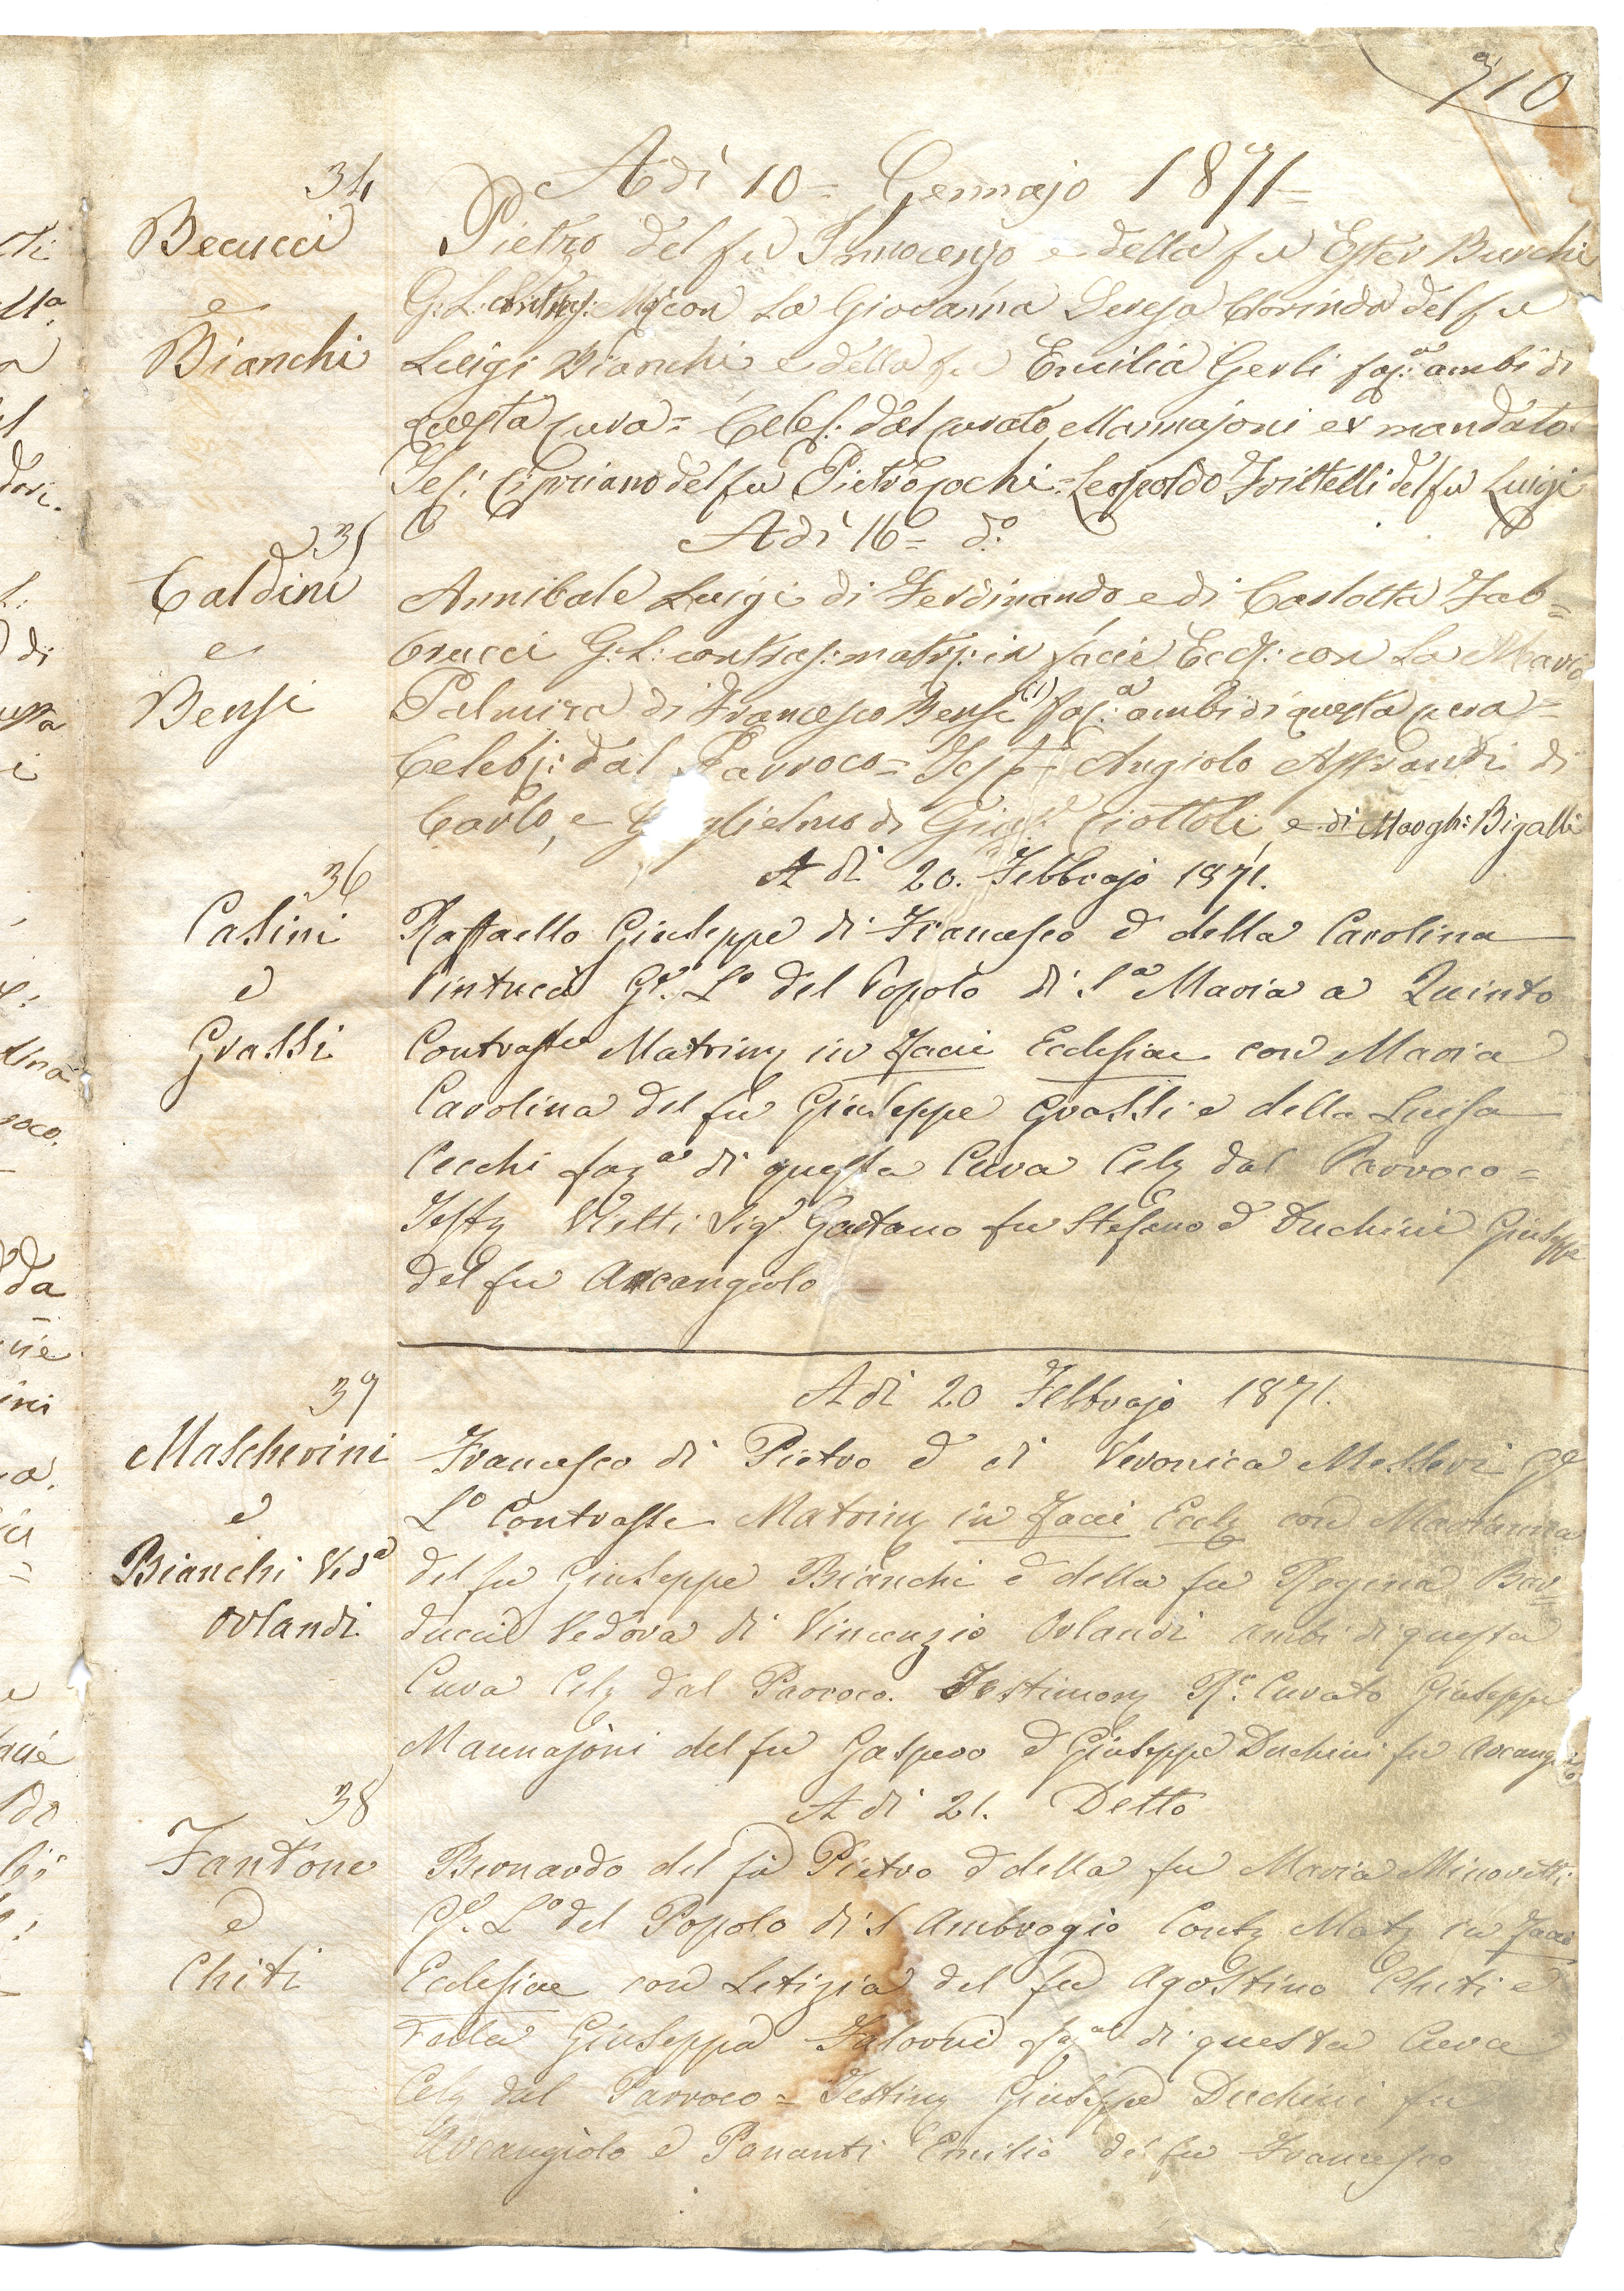 710
34
Adì 10= Gennajo 1871=
Becucci
e
Bianchi
Pietro del fu Innocenzo e della fu Ester Burchi
con La Giovanna Teresa Clorinda del fu
Luigi Bianchi e della fu Emilia Gerli faz.ª ambi di
questa cura= Celeb: dal curato Mannajoni ex mandato
Tes: Cipriano del fu Pietro Cochi= Leopoldo Frittelli del fu Luigi
Adì 16= d.º
35
Caldini
e
Bensi
Annibale Luigi di Ferdinando, e di Carlotta Fab=
brucci G: L: contras: matri: in facie Eccl: con La Maria
Palmira di Francesco Bensi (1) faz.ª ambi di questa cura=
Celeb: dal Parroco= Angiolo di
Carlo, e di Ciottoli, e di Margh: Bigalli
36
A dì 20. Febbrajo 1871.
Casini
e
Grassi
Raffaello Giuseppe di Francesco e della Carolina
Pintucci G.e L.o del Popolo di S.a Maria a Quinto
Contrasse Matrim in Facie Ecclesiae con Maria
Carolina del fu Giuseppe Grassi e della Luisa
Cecchi faz.ª di questa Cura Cel dal Parroco=
Test Vietti Sig.r Gaetano fu Stefano e Duchini Giuseppe
del fu Arcangiolo
37
A dì 20 Febbrajo 1871.
Mascherini
e
Bianchi Ved.a
Orlandi
Francesco di Pietro e di Veronica Messeri G.e
L.o Contrasse Matrim in Facie Eccl con Marianna
del fu Giuseppe Bianchi e della fu Regina Bar=
ducci Vedova di Vincenzio Orlandi ambi di questa
Cura Cel dal Parroco. Testimon R.o Curato Giuseppe
Mannajoni del fu Gaspero e Giuseppe Duchini fu Arcangiolo
38
A dì 21. Detto
Fantone
e
Chiti
Bernardo del fu Pietro e della fu Maria Minoretti
G.e L.o del Popolo di S Ambrogio Cont Mat in Facie
Ecclesiae con Letizia del fu Agostino Chiti e
Giuseppa faz.ª di questa Cura
Cel dal Parroco= Testim Giuseppe Duchini fu
Arcangiolo e Pananti Emilio del fu Francesco